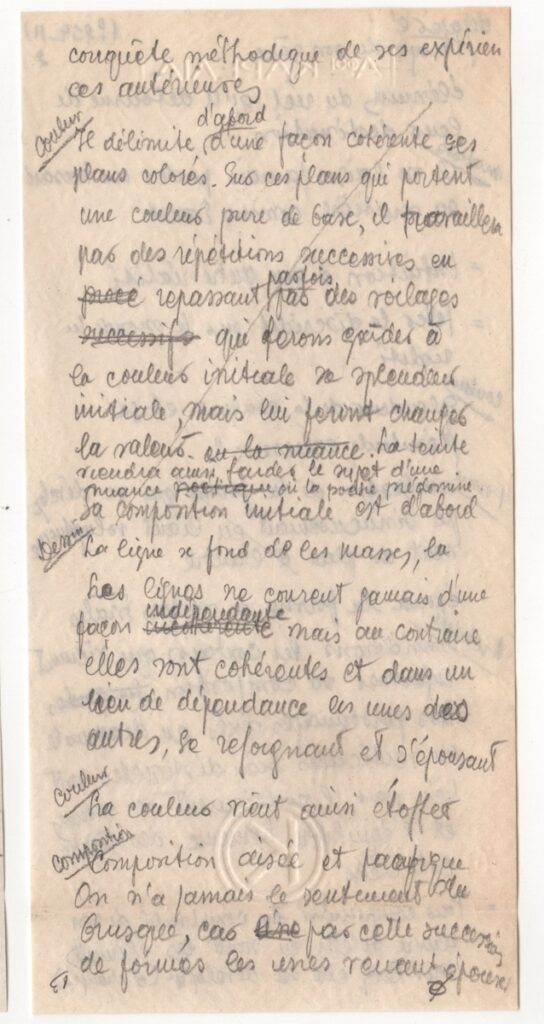 conquête méthodique de ses expérien
ces antérieures
d'abord
Couleur
Il délimite d'une façon cohérente ses
plans colorés. Sur ces plans qui portent
une couleur pure de base, il travaillera
par des répétitions successives en
repassant parfois par des voilages
successifs qui feront garder à
la couleur initiale sa splendeur
initiale, mais lui feront changer
la valeur. ou la nuance. La teinte
viendra ainsi farder le sujet d'une
nuance poétique où la poésie prédomine.
Sa composition initiale est d'abord
Dessin
La ligne se fond de les masses, la
Les lignes ne courent jamais d'une
indépendante
façon incohérente mais au contraire
elles sont cohérentes et dans un
lien de dépendance les unes des
autres, se rejoignant et s'épousant
Couleur
La couleur vient ainsi étoffer
Composition
Composition aisée et pacifique
On n'a jamais le sentiment du
brusqué, car par cette succession
de formes les unes venant épouser